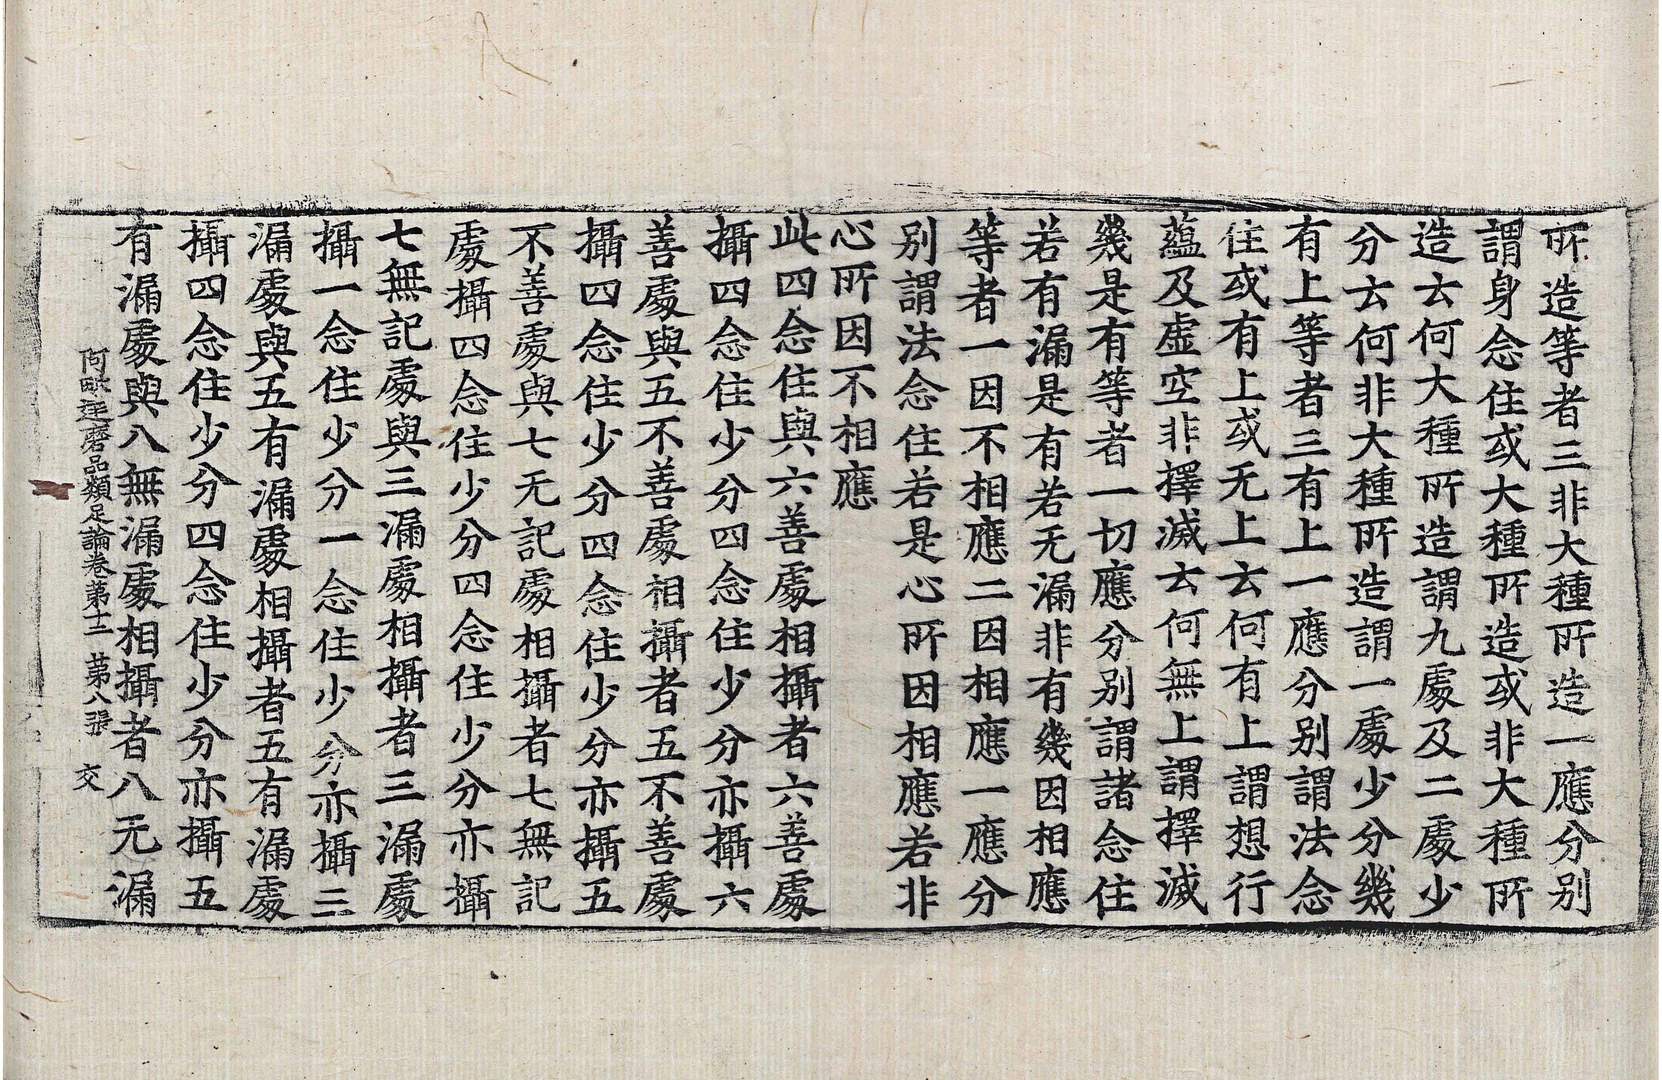 所造等者三非大種所造一應分別
謂身念住或大種所造或非大種所
造云何大種所造謂九處及二處少
分云何非大種所造謂一處少分幾
有上等者三有上一應分別謂法念
住或有上或无上云何有上謂想行
蘊及虛空非擇滅云何無上謂擇滅
幾是有等者一切應分別謂諸念住
若有漏是有若无漏非有幾因相應
等者一因不相應二因相應一應分
別謂法念住若是心所因相應若非
心所因不相應
此四念住與六善處相攝者六善處
攝四念住少分四念住少分亦攝六
善處與五不善處相攝者五不善處
攝四念住少分四念住少分亦攝五
不善處與七无記處相攝者七無記
處攝四念住少分四念住少分亦攝
七無記處與三漏處相攝者三漏處
攝一念住少分一念住少分亦攝三
漏處與五有漏處相攝者五有漏處
攝四念住少分四念住少分亦攝五
有漏處與八無漏處相攝者八无漏
阿毗達磨品類足論卷第十二 第八張 交